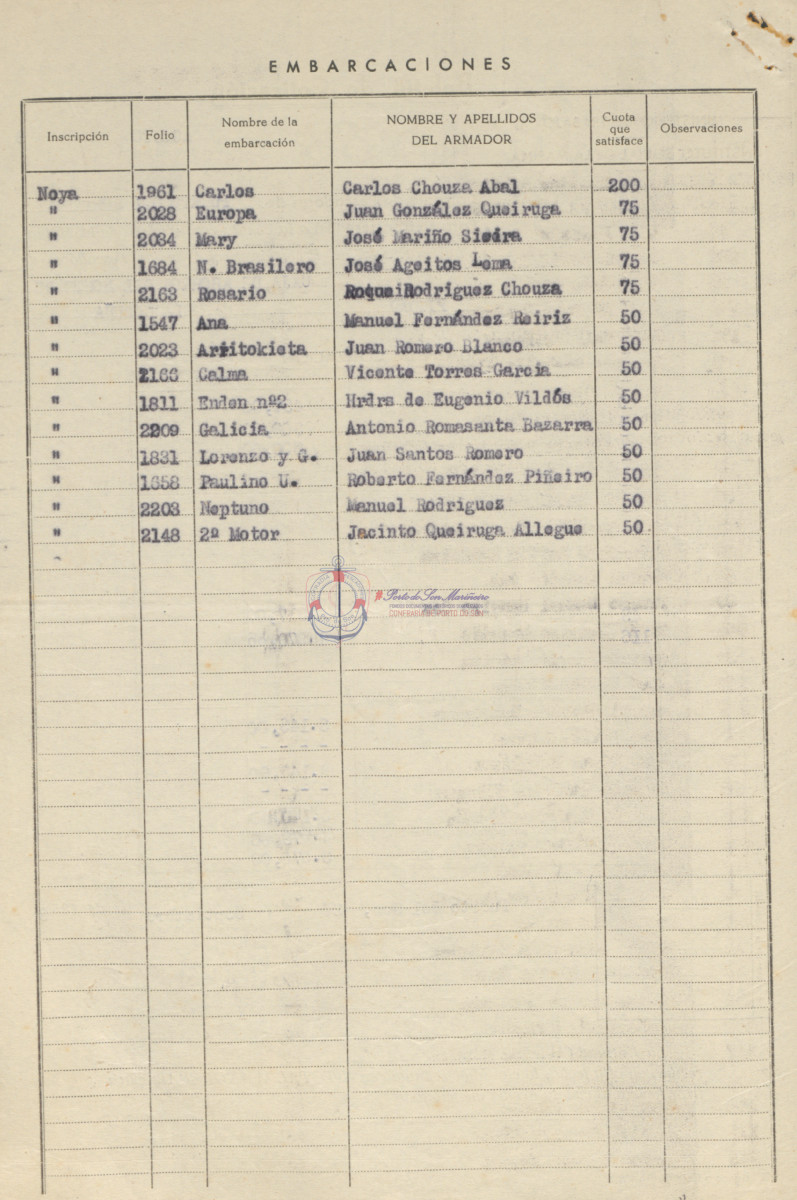 EMBARCACIONES
Inscripción Folio Nombre de la embarcación NOMBRE Y APELLIDOS DEL ARMADOR Cuota que satisface Observaciones
Noya 1961 Carlos Carlos Chouza Abal 200
" 2028 Europa Juan González Queiruga 75
" 2034 Mary José Mariño Sieira 75
" 1684 N. Brasilero José Ageitos Lema 75
" 2163 Rosario Rodriguez Chouza 75
" 1547 Ana Manuel Fernández Reiriz 50
" 2023 Arritokieta Juan Romero Blanco 50
" 2166 Calma Vicente Torres Garcia 50
" 1811 Enden nº2 Hrdrs de Eugenio Vildós 50
" 2209 Galicia Antonio Romasanta Bazarra 50
" 1831 Lorenzo y G. Juan Santos Romero 50
" 1658 Paulino U. Roberto Fernández Piñeiro 50
" 2203 Neptuno Manuel Rodriguez 50
" 2148 2º Motor Jacinto Queiruga Allegue 50
Porto do Son Mariñeiro
CONFRARÍA DE PORTO DO SON